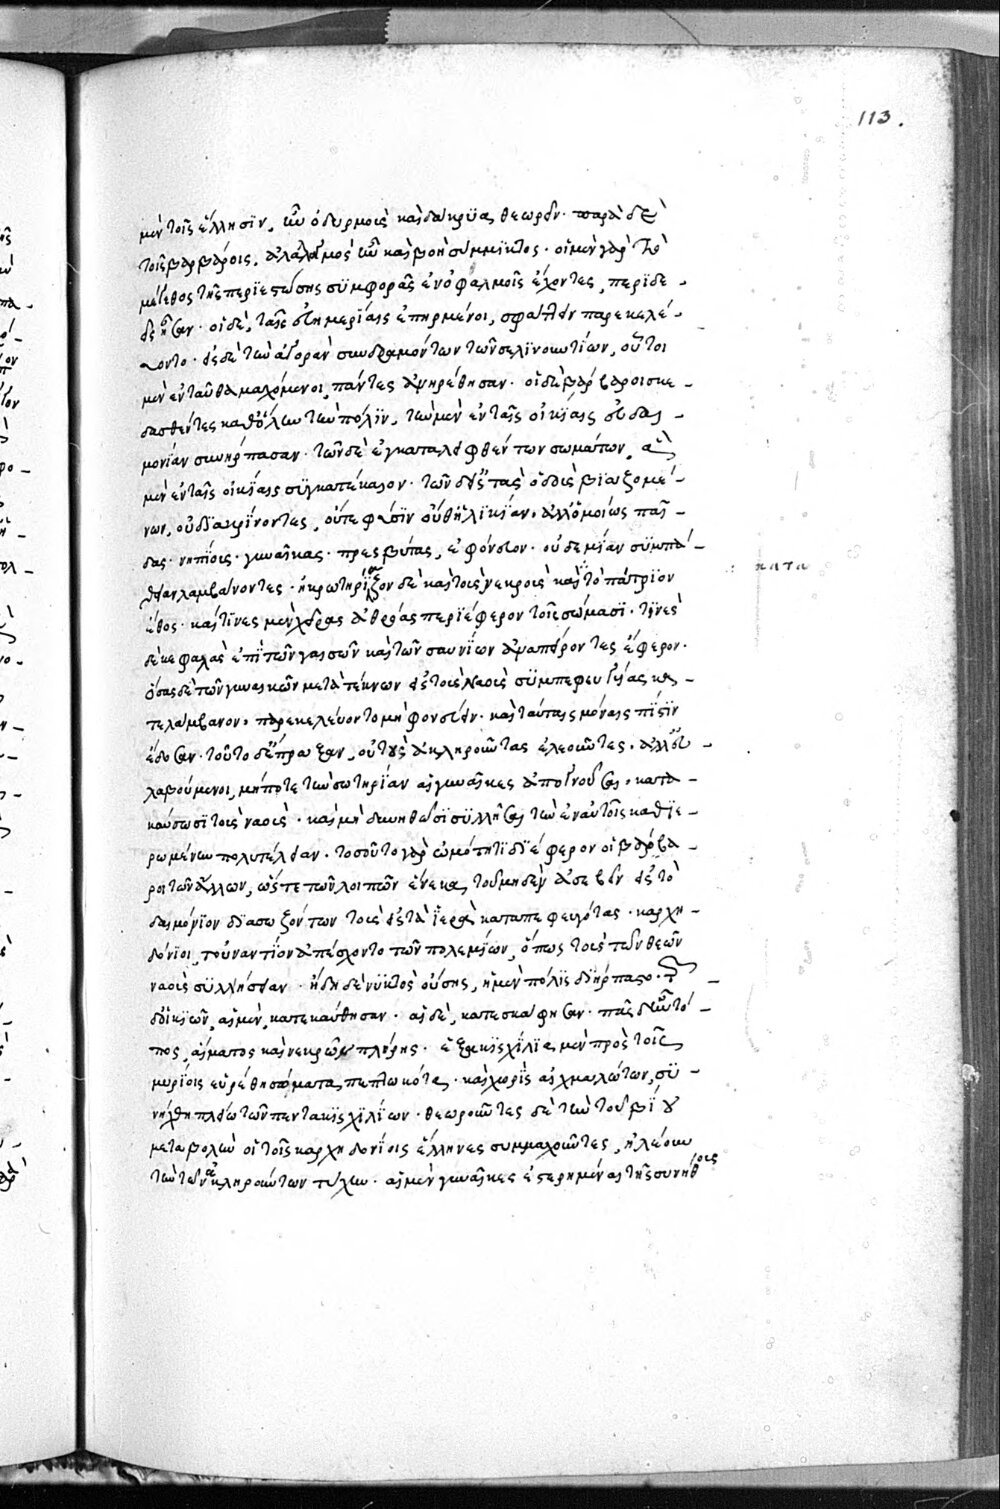 113.
μὲν τοῖς ἕλλησϊν, ἦν ὀδυρμοὶς καὶ δακρύϊα θεωρεῖν· παρὰ δὲ
τοῖς βαρβάροις, ἀλαλαγμὸς ἦν καὶ βοὴ σύμμϊκτος· οἱ μὲν γὰρ τὸ
μέγεθος τῆς περϊεστώσης συμφορᾶς ἐν ὀφθαλμοῖς ἔχοντες, περϊδε-
εῖς ἦσαν· οἱ δὲ, ταῖς εὐημερίαις ἐπηρμένοι, σφάττειν παρεκελεύ-
οντο· εἰς δὲ τὴν ἀγορὰν συνδραμόντων τῶν σελϊνουντίων, οὗτοι
μὲν ἐνταῦθα μαχόμενοι, πάντες ἀνῃρέθησαν· οἱ δὲ βάρβαροι σκε-
δασθέντες καθ' ὅλην τὴν πόλϊν, τὴν μὲν ἐν ταῖς οἰκίαις εὐδαι-
μονίαν συνήρπασαν· τῶν δὲ ἐγκαταλειφθέντων σωμάτων, ἃ
μὲν ἐν ταῖς οἰκίαις συγκατέκαιον· τῶν δ' εἰς τὰς ὁδοὺς βϊαζομέ-
νων, οὐ δϊακρίνοντες, οὔτε φύσϊν οὔθ' ἡλϊκίαν, ἀλλ' ὁμοίως παῖ-
δας· νηπίους· γυναῖκας· πρεσβύτας, ἐφόνευον· οὐδεμίαν συμπά-
θειαν λαμβάνοντες· ἠκρωτηρίαζον δὲ καὶ τοὺς νεκροὺς κατὰ τὸ πάτρϊον
κατα
ἔθος· καὶ τϊνὲς μὲν χεῖρας ἀθρόας περϊέφερον τοῖς σώμασϊ· τϊνὲς
δὲ κεφαλὰς ἐπὶ τῶν γαισῶν καὶ τῶν σαυνίων ἀναπείροντες ἔφερον·
ὅσας δὲ τῶν γυναικῶν μετὰ τέκνων εἰς τοὺς ναοὺς συμπεφευγυίας κα-
τελάμβανον, παρεκελεύοντο μὴ φονεύειν· καὶ ταύταις μόναις πίστϊν
ἔδοσαν· τοῦτο δ' ἔπραξαν, οὐ τοὺς ἀκληροῦντας ἐλεοῦντες, ἀλλ' εὐ-
λαβούμενοι, μήποτε τὴν σωτηρίαν αἱ γυναῖκες ἀπογνοῦσαι, κατα-
καύσωσϊ τοὺς ναοὺς· καὶ μὴ δυνηθῶσϊ συλλῆσαι τὴν ἐν αὐτοῖς καθϊε-
ρωμένην πολυτέλειαν· τοσοῦτο γὰρ ὠμότητϊ δϊέφερον οἱ βάρβα-
ροι τῶν ἄλλων, ὥστε τῶν λοιπῶν ἕνεκα τοῦ μηδὲν ἀσεβεῖν εἰς τὸ
δαιμόνϊον δϊασωζόντων τοὺς εἰς τὰ ἱερὰ καταπεφευγότας· καρχη-
δόνϊοι, τοὐναντίον ἀπέσχοντο τῶν πολεμίων, ὅπως τοὺς τῶν θεῶν
ναοὺς συλλήσειαν· ἤδη δὲ νϋκτὸς οὔσης, ἡ μὲν πόλϊς δϊήρπαστο· τ
δ' οἰκϊῶν, αἱ μὲν, κατεκαύθησαν· αἱ δὲ, κατεσκάφησαν· πᾶς δ' ἦν τό-
πος, αἵματος καὶ νεκρῶν πλήρης· ἑξακϊσχίλϊα μὲν πρὸς τοῖς
μυρίοις εὑρέθη σώματα πεπτωκότα, καὶ χωρὶς αἰχμαλώτων, συ-
νήχθη πλείω τῶν πεντακϊσχιλίων· θεωροῦντες δὲ τὴν τοῦ βίου
μεταβολὴν οἱ τοῖς καρχηδονίοις ἕλληνες συμμαχοῦντες, ἠλέουν
τὴν τῶν ἀκληρούντων τύχην· αἱ μὲν γυναῖκες ἐστερημέναι τῆς συνήθους